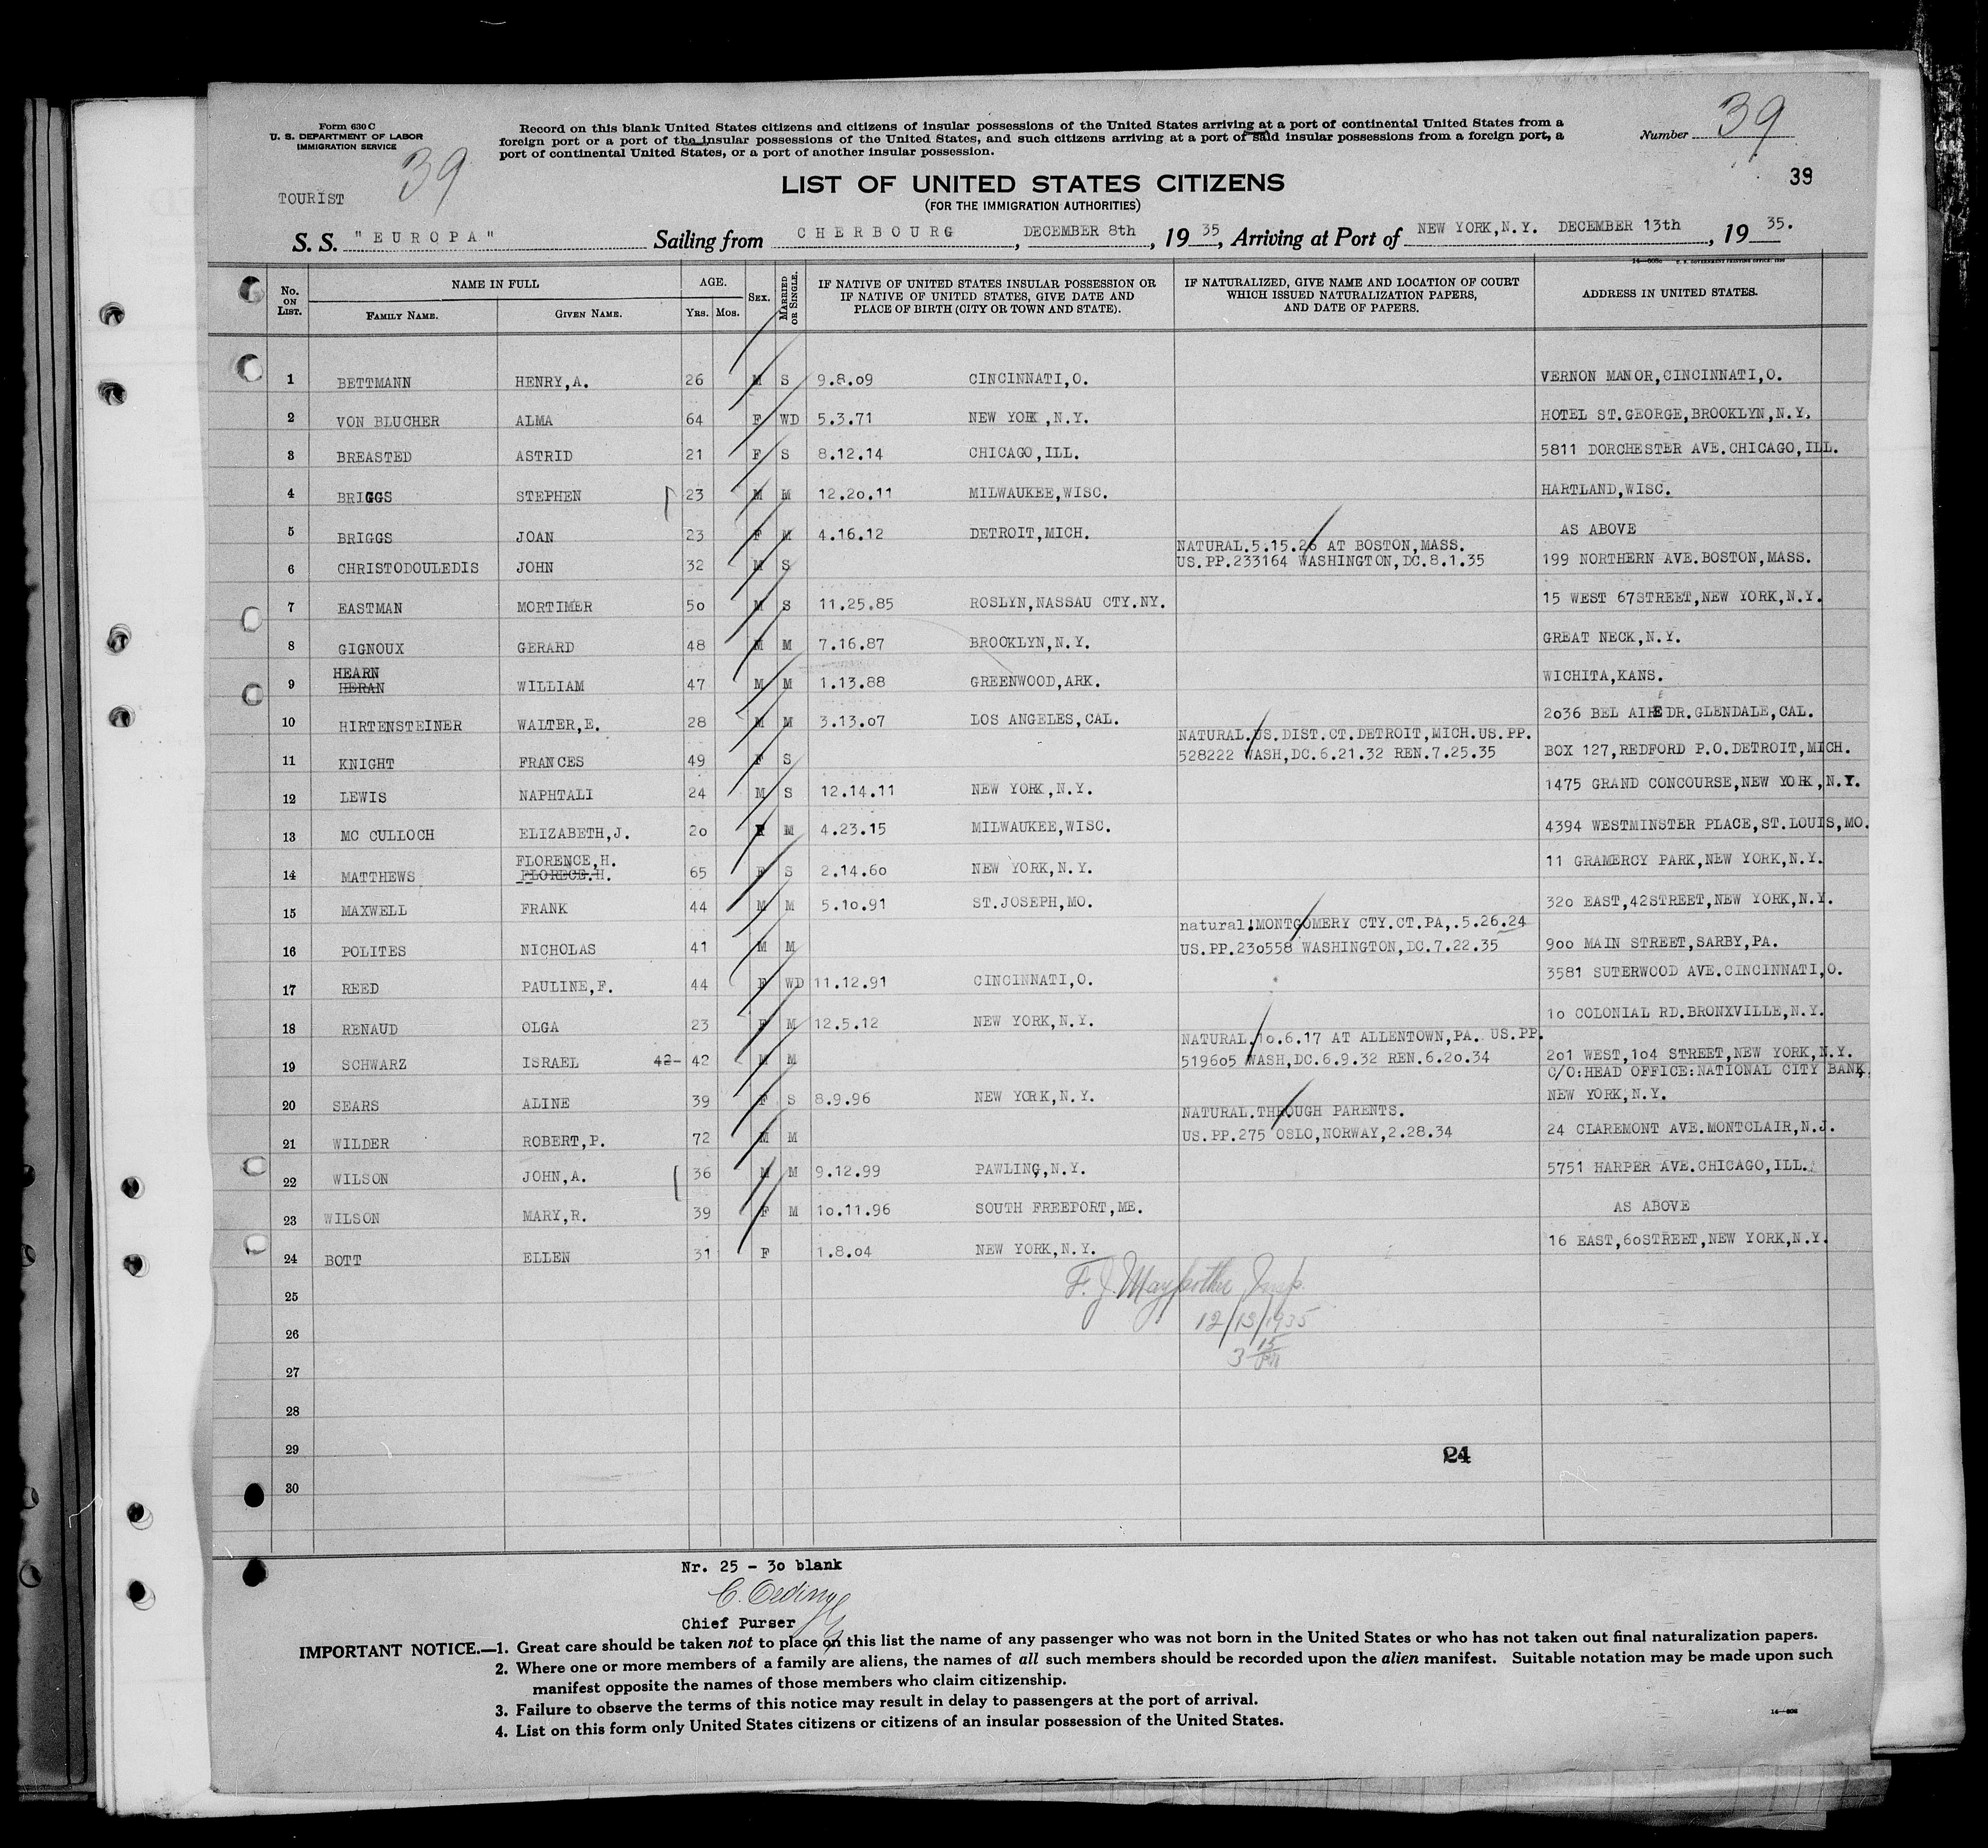 Form 630 C
U. S. DEPARTMENT OF LABOR
IMMIGRATION SERVICE
39
TOURIST
Record on this blank United States citizens and citizens of insular possessions of the United States arriving at a port of continental United States from a
foreign port or a port of the insular possessions of the United States, and such citizens arriving at a port of said insular possessions from a foreign port, a
port of continental United States, or a port of another insular possession.
Number 39
39
LIST OF UNITED STATES CITIZENS
(FOR THE IMMIGRATION AUTHORITIES)
S. S. "EUROPA" Sailing from CHERBOURG, DECEMBER 8th, 1935, Arriving at Port of NEW YORK,N.Y. DECEMBER 13th, 1935.
No. ON LIST. NAME IN FULL FAMILY NAME. GIVEN NAME. AGE. YRS. MOS. SEX. MARRIED OR SINGLE. IF NATIVE OF UNITED STATES INSULAR POSSESSION OR IF NATIVE OF UNITED STATES, GIVE DATE AND PLACE OF BIRTH (CITY OR TOWN AND STATE). IF NATURALIZED, GIVE NAME AND LOCATION OF COURT WHICH ISSUED NATURALIZATION PAPERS, AND DATE OF PAPERS. ADDRESS IN UNITED STATES.
1 BETTMANN HENRY,A. 26 M S 9.8.09 CINCINNATI,O. VERNON MANOR,CINCINNATI,O.
2 VON BLUCHER ALMA 64 F WD 5.3.71 NEW YORK,N.Y. HOTEL ST.GEORGE,BROOKLYN,N.Y.
3 BREASTED ASTRID 21 F S 8.12.14 CHICAGO,ILL. 5811 DORCHESTER AVE.CHICAGO,ILL.
4 BRIGGS STEPHEN 23 M M 12.20.11 MILWAUKEE,WISC. HARTLAND,WISC.
5 BRIGGS JOAN 23 F M 4.16.12 DETROIT,MICH. AS ABOVE
NATURAL.5.15.26 AT BOSTON,MASS.
6 CHRISTODOULEDIS JOHN 32 M S US.PP.233164 WASHINGTON,DC.8.1.35 199 NORTHERN AVE.BOSTON,MASS.
7 EASTMAN MORTIMER 50 M S 11.25.85 ROSLYN,NASSAU CTY.NY. 15 WEST 67STREET,NEW YORK,N.Y.
8 GIGNOUX GERARD 48 M M 7.16.87 BROOKLYN,N.Y. GREAT NECK,N.Y.
HEARN
9 HERAN WILLIAM 47 M M 1.13.88 GREENWOOD,ARK. WICHITA,KANS.
10 HIRTENSTEINER WALTER,E. 28 M M 3.13.07 LOS ANGELES,CAL. 2036 BEL AIRE DR.GLENDALE,CAL.
NATURAL.US.DIST.CT.DETROIT,MICH.US.PP.
11 KNIGHT FRANCES 49 F S 528222 WASH,DC.6.21.32 REN.7.25.35 BOX 127,REDFORD P.O.DETROIT,MICH.
12 LEWIS NAPHTALI 24 M S 12.14.11 NEW YORK,N.Y. 1475 GRAND CONCOURSE,NEW YORK,N.Y.
13 MC CULLOCH ELIZABETH,J. 20 F M 4.23.15 MILWAUKEE,WISC. 4394 WESTMINSTER PLACE,ST.LOUIS,MO.
FLORENCE,H.
14 MATTHEWS FLORECE.H. 65 F S 2.14.60 NEW YORK,N.Y. 11 GRAMERCY PARK,NEW YORK,N.Y.
15 MAXWELL FRANK 44 M M 5.10.91 ST.JOSEPH,MO. 320 EAST,42STREET,NEW YORK,N.Y.
natural.MONTGOMERY CTY.CT.PA,.5.26.24
16 POLITES NICHOLAS 41 M M US.PP.230558 WASHINGTON,DC.7.22.35 900 MAIN STREET,SARBY,PA.
17 REED PAULINE,F. 44 F WD 11.12.91 CINCINNATI,O. 3581 SUTERWOOD AVE.CINCINNATI,O.
18 RENAUD OLGA 23 F M 12.5.12 NEW YORK,N.Y. 10 COLONIAL RD.BRONXVILLE,N.Y.
NATURAL.10.6.17 AT ALLENTOWN,PA. US.PP.
19 SCHWARZ ISRAEL 42- 42 M M 519605 WASH,DC.6.9.32 REN.6.20.34 201 WEST,104 STREET,NEW YORK,N.Y.
C/O:HEAD OFFICE:NATIONAL CITY BANK,
20 SEARS ALINE 39 F S 8.9.96 NEW YORK,N.Y. NEW YORK,N.Y.
NATURAL.THROUGH PARENTS.
21 WILDER ROBERT,P. 72 M M US.PP.275 OSLO,NORWAY,2.28.34 24 CLAREMONT AVE.MONTCLAIR,N.J.
22 WILSON JOHN,A. 36 M M 9.12.99 PAWLING,N.Y. 5751 HARPER AVE.CHICAGO,ILL.
23 WILSON MARY,R. 39 F M 10.11.96 SOUTH FREEPORT,ME. AS ABOVE
24 BOTT ELLEN 31 F 1.8.04 NEW YORK,N.Y. 16 EAST,60STREET,NEW YORK,N.Y.
25
F. J. Insp.
26
12/13/1935
27
3 15 PM
28
29
24
30
Nr. 25 - 30 blank
Chief Purser
IMPORTANT NOTICE.—1. Great care should be taken not to place on this list the name of any passenger who was not born in the United States or who has not taken out final naturalization papers.
2. Where one or more members of a family are aliens, the names of all such members should be recorded upon the alien manifest. Suitable notation may be made upon such
manifest opposite the names of those members who claim citizenship.
3. Failure to observe the terms of this notice may result in delay to passengers at the port of arrival.
4. List on this form only United States citizens or citizens of an insular possession of the United States.